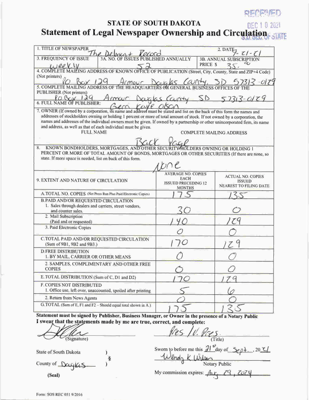 RECEIVED
DEC 10 2021
STATE OF SOUTH DAKOTA
Statement of Legal Newspaper Ownership and Circulation
1. TITLE OF NEWSPAPER The Delmont Record 2. DATE
3. FREQUENCY OF ISSUE Weekly 3A. NO. OF ISSUES PUBLISHED ANNUALLY 52 3B. ANNUAL SUBSCRIPTION PRICE $
4. COMPLETE MAILING ADDRESS OF KNOWN OFFICE OF PUBLICATION (Street, City, County, State and ZIP+4 Code) (Not printers)
Po Box 129 Armour Douglas County, SD 57313-0129
5. COMPLETE MAILING ADDRESS OF THE HEADQUARTERS OR GENERAL BUSINESS OFFICES OF THE PUBLISHER (Not printers)
Po Box 129 Armour Douglas County SD 57313-0129
6. FULL NAME OF PUBLISHER:
7. OWNER (If owned by a corporation, its name and address must be stated and list on the back of this form the names and addresses of stockholders owning or holding 1 percent or more of total amount of stock. If not owned by a corporation, the names and addresses of the individual owners must be given. If owned by a partnership or other unincorporated firm, its name and address, as well as that of each individual must be given.
FULL NAME COMPLETE MAILING ADDRESS
Back Page
8. KNOWN BONDHOLDERS, MORTGAGES, AND OTHER SECURITY HOLDERS OWNING OR HOLDING 1 PERCENT OR MORE OF TOTAL AMOUNT OF BONDS, MORTGAGES OR OTHER SECURITIES (If there are none, so state. If more space is needed, list on back of this form.
None
9. EXTENT AND NATURE OF CIRCULATION AVERAGE NO. COPIES EACH ISSUED PRECEDING 12 MONTHS ACTUAL NO. COPIES ISSUED NEAREST TO FILING DATE
A. TOTAL NO. COPIES 175 135
B. PAID AND/OR REQUESTED CIRCULATION
1. Sales through dealers and carriers, street vendors, and counter sales 30 0
2. Mail Subscription (Paid and or requested) 140 129
3. Paid Electronic Copies 0 0
C. TOTAL PAID AND/OR REQUESTED CIRCULATION (Sum of 9B1, 9B2 and 9B3) 170 129
D. FREE DISTRIBUTION
1. BY MAIL, CARRIER OR OTHER MEANS 0 0
2. SAMPLES, COMPLIMENTARY AND OTHER FREE COPIES 0 0
E. TOTAL DISTRIBUTION (Sum of C, D1 and D2) 170 129
F. COPIES NOT DISTRIBUTED
1. Office use, left over, unaccounted, spoiled after printing 5 6
2. Return from News Agents 0 0
G. TOTAL (Sum of E, F1 and F2 - Should equal total shown in A.) 175 135
Statement must be signed by Publisher, Business Manager, or Owner in the presence of a Notary Public
I swear that the statements made by me are true, correct, and complete:
(Signature) (Title)
State of South Dakota )
County of Douglas )
Sworn to before me this 21st day of Sept., 2021
Notary Public
(Seal)
My commission expires: